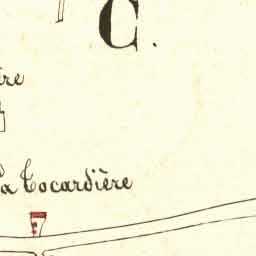 C.
ère
La Tocardière